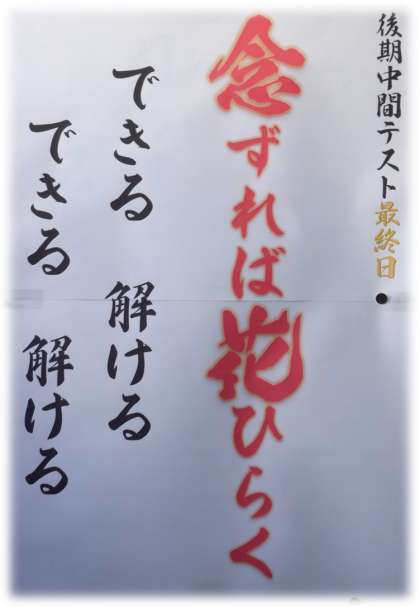 後期中間テスト最終日
念ずれば花ひらく
できる 解ける
できる 解ける